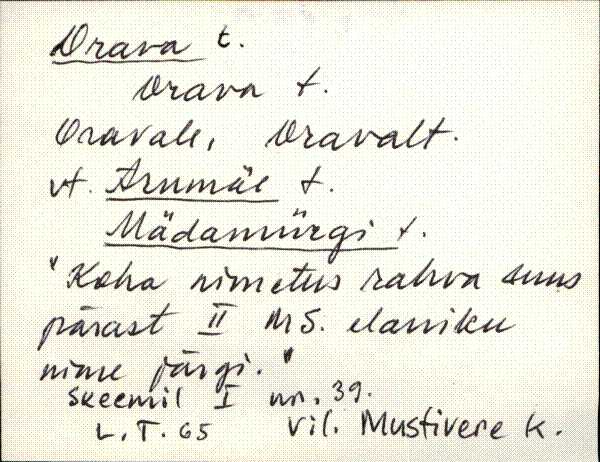 Orava t.
Orava t.
Oravale, Oravalt.
vt. Arumäe t.
Mädamürgi t.
"Koha nimetus rahva suus
pärast II MS. elaniku
nime järgi."
skeemil I nr. 39.
L.T. 65 Vil. Mustivere k.